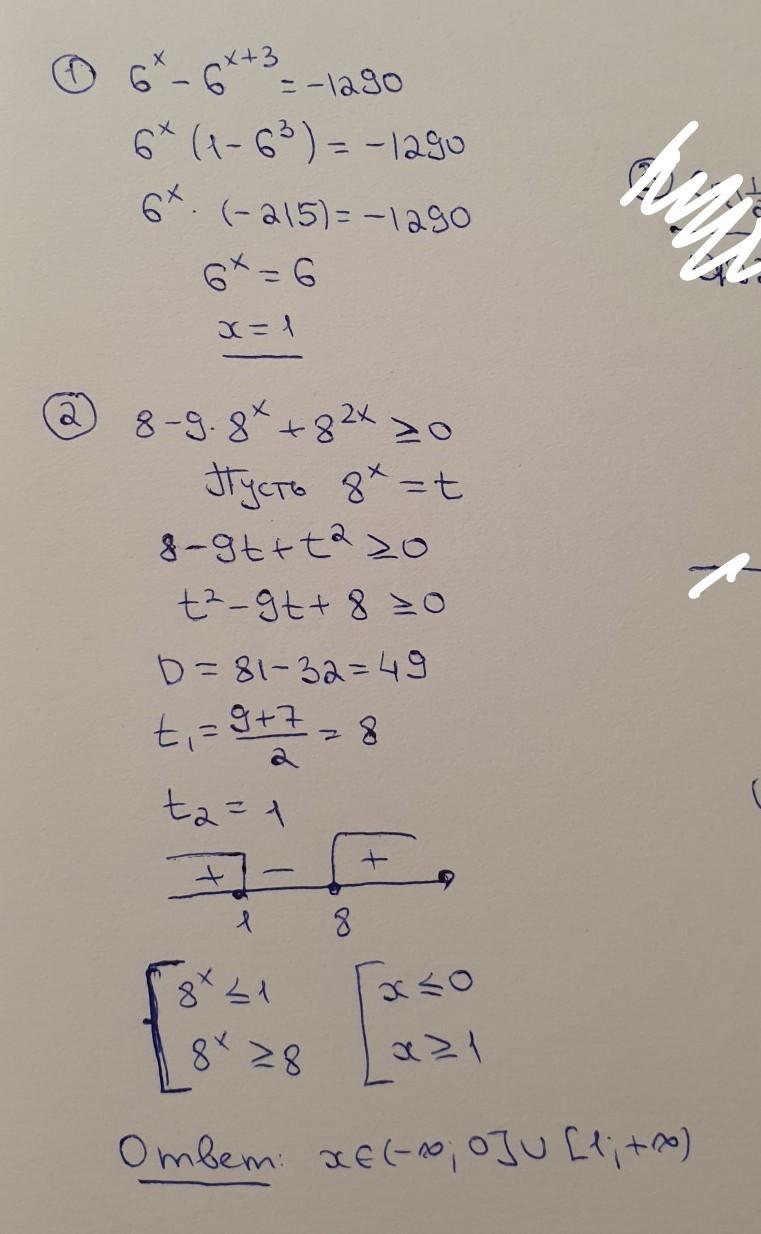 ① 6ˣ - 6ˣ⁺³ = -1290
6ˣ (1 - 6³) = -1290
6ˣ · (-215) = -1290
6ˣ = 6
x = 1
② 8 - 9 · 8ˣ + 8²ˣ ≥ 0
Пусть 8ˣ = t
8 - 9t + t² ≥ 0
t² - 9t + 8 ≥ 0
D = 81 - 32 = 49
t₁ = (9+7)/2 = 8
t₂ = 1
+ - +
1 8
[ 8ˣ ≤ 1 [ x ≤ 0
8ˣ ≥ 8 x ≥ 1
Ответ: x ∈ (-∞; 0] ∪ [1; +∞)